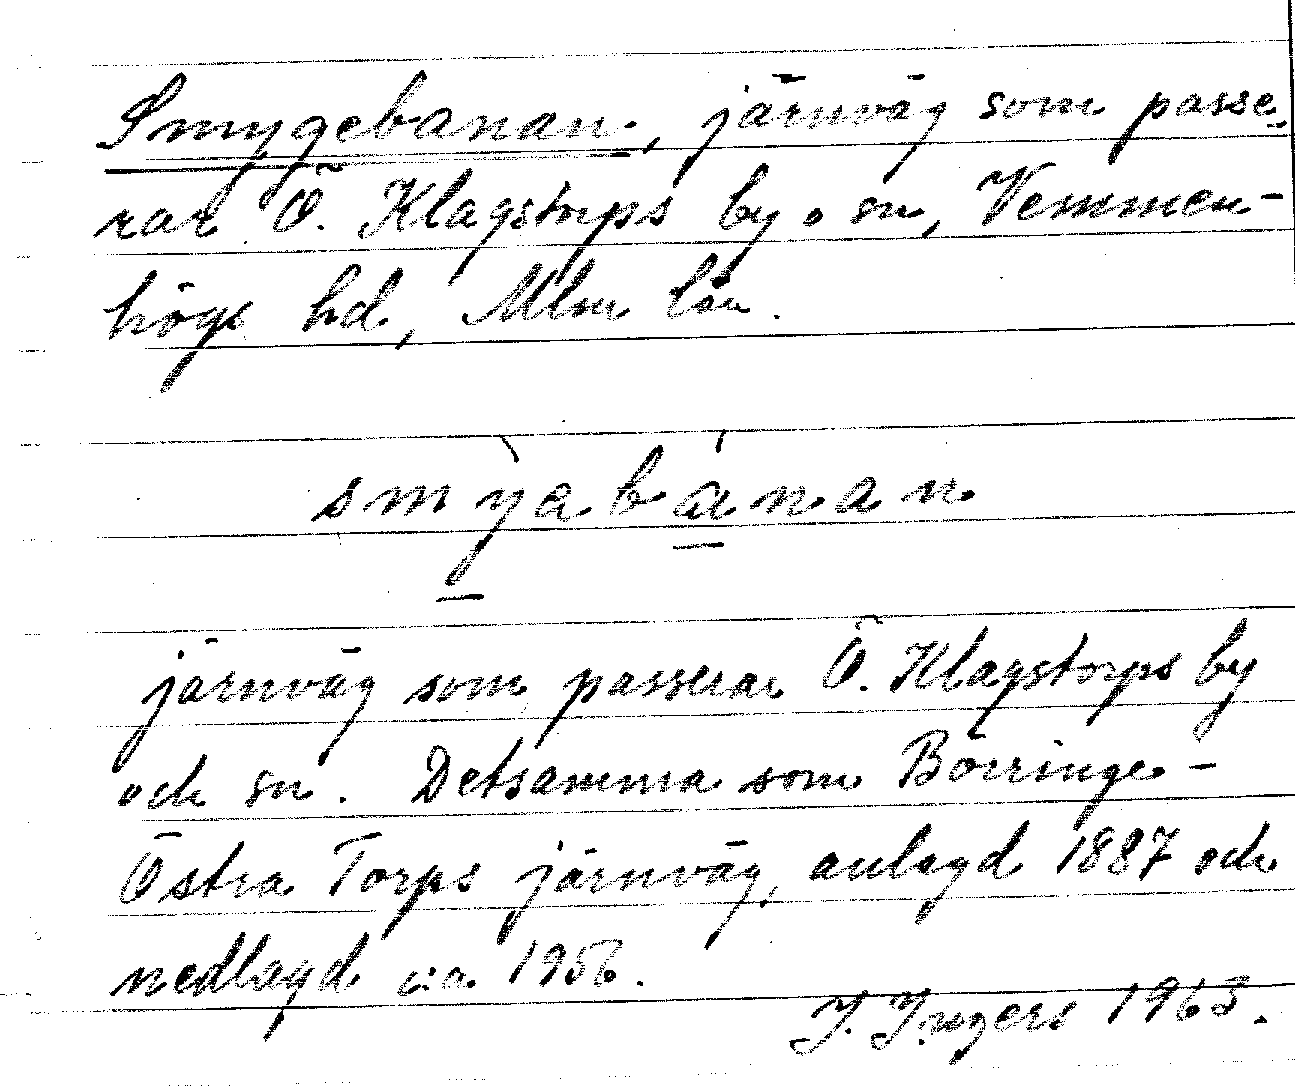 Smygebanan, järnväg som passe-
rar Ö. Klagstorps by o sn, Vemmen-
högs hd, Mlm län.
smỳabánan
järnväg som passerar Ö. Klagstorps by
och sn. Detsamma som Börringe-
Östra Torps järnväg, anlagd 1887 och
nedlagd c:a 1956.
I. Ingers 1963.